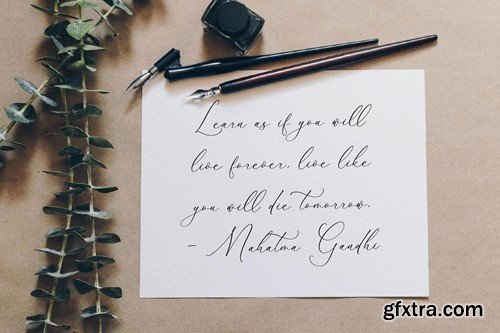 Learn as if you will
live forever, live like
you will die tomorrow.
- Mahatma Gandhi
gfxtra.com